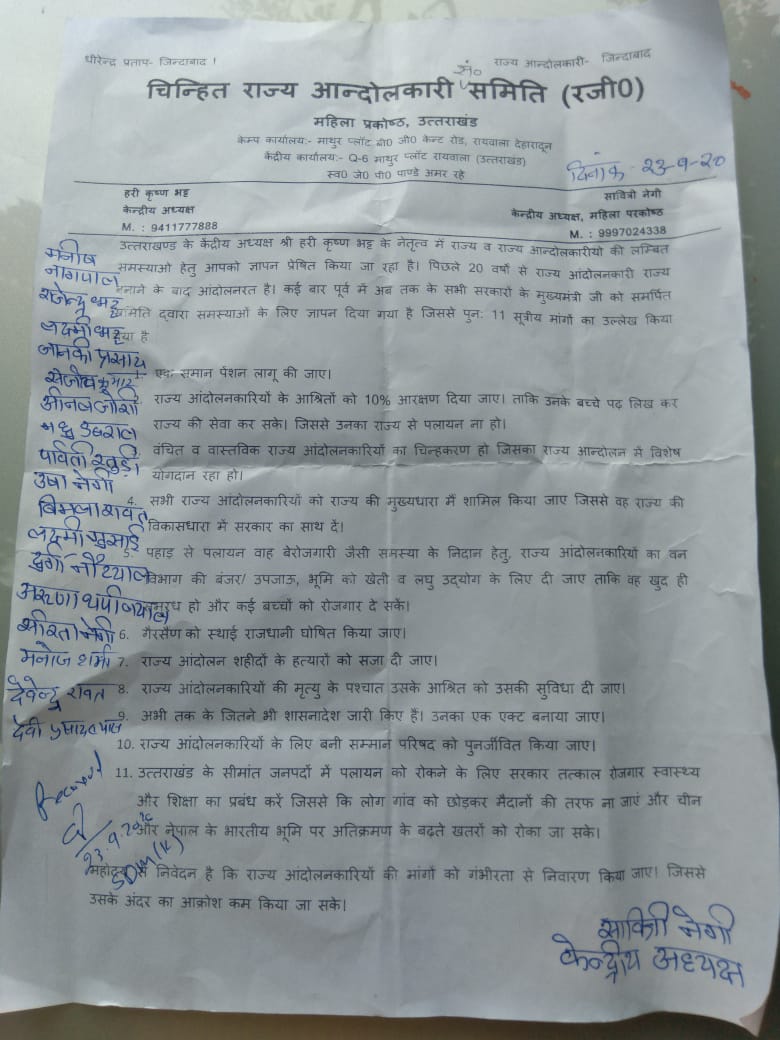 धीरेन्द्र प्रताप- जिन्दाबाद ! राज्य आन्दोलकारी- जिन्दाबाद
सं०
चिन्हित राज्य आन्दोलकारी समिति (रजी0)
महिला प्रकोष्ठ, उत्तराखंड
केम्प कार्यालय:- माथुर प्लॉट बी0 जी0 केन्ट रोड, रायवाला देहारादून
केंद्रीय कार्यालय:- Q-6 माथुर प्लॉट रायवाला (उत्तराखंड)
स्व0 जे0 पी0 पाण्डे अमर रहे
दिनांक - 23-9-20
हरी कृष्ण भट्ट सावित्री नेगी
केन्द्रीय अध्यक्ष केन्द्रीय अध्यक्ष, महिला परकोष्ठ
M. : 9411777888 M. : 9997024338
उत्तराखण्ड के केंद्रीय अध्यक्ष श्री हरी कृष्ण भट्ट के नेतृत्व में राज्य व राज्य आन्दोलकारीयों की लम्बित
समस्याओ हेतु आपको ज्ञापन प्रेषित किया जा रहा है। पिछले 20 वर्षो से राज्य आंदोलनकारी राज्य
बनाने के बाद आंदोलनरत है। कई बार पूर्व में अब तक के सभी सरकारों के मुख्यमंत्री जी को समर्पित
समिति द्वारा समस्याओं के लिए ज्ञापन दिया गया है जिससे पुन: 11 सूत्रीय मांगों का उल्लेख किया
गया है
एक समान पेंशन लागू की जाए।
2. राज्य आंदोलनकारियों के आश्रितों को 10% आरक्षण दिया जाए। ताकि उनके बच्चे पढ़ लिख कर
राज्य की सेवा कर सके। जिससे उनका राज्य से पलायन ना हो।
वंचित व वास्तविक राज्य आंदोलनकारियों का चिन्हकरण हो जिसका राज्य आन्दोलन में विशेष
योगदान रहा हो।
4. सभी राज्य आंदोलनकारियों को राज्य की मुख्यधारा मैं शामिल किया जाए जिससे वह राज्य की
विकासधारा में सरकार का साथ दें।
5. पहाड़ से पलायन वाह बेरोजगारी जैसी समस्या के निदान हेतु, राज्य आंदोलनकारियों का वन
विभाग की बंजर/ उपजाऊ, भूमि को खेती व लघु उद्योग के लिए दी जाए ताकि वह खुद ही
समृरध हो और कई बच्चों को रोजगार दे सकें।
6. गैरसैंण को स्थाई राजधानी घोषित किया जाए।
7. राज्य आंदोलन शहीदों के हत्यारों को सजा दी जाए।
8. राज्य आंदोलनकारियों की मृत्यु के पश्चात उसके आश्रित को उसकी सुविधा दी जाए।
9. अभी तक के जितने भी शासनादेश जारी किए हैं। उनका एक एक्ट बनाया जाए।
10. राज्य आंदोलनकारियों के लिए बनी सम्मान परिषद को पुनर्जीवित किया जाए।
11. उत्तराखंड के सीमांत जनपदों में पलायन को रोकने के लिए सरकार तत्काल रोजगार स्वास्थ्य
और शिक्षा का प्रबंध करें जिससे कि लोग गांव को छोड़कर मैदानों की तरफ ना जाएं और चीन
और नेपाल के भारतीय भूमि पर अतिक्रमण के बढ़ते खतरों को रोका जा सके।
महोदय से निवेदन है कि राज्य आंदोलनकारियों की मांगों को गंभीरता से निवारण किया जाए। जिससे
उसके अंदर का आक्रोश कम किया जा सके।
मनीष
नागपाल
राजेन्द्र भट्ट
लक्ष्मी भट्ट
जानकी प्रसाद
संजीव कुमार
मधु डबराल
पार्वती रतूड़ी
उषा नेगी
बिमला रावत
लक्ष्मी गुसाई
दुर्गा नौटियाल
अरुणा थपलियाल
सरिता नेगी
मनोज शर्मा
देवेन्द्र रावत
देवी प्रसाद
Received
23.9.2020
SDM(K)
सावित्री नेगी
केन्द्रीय अध्यक्ष